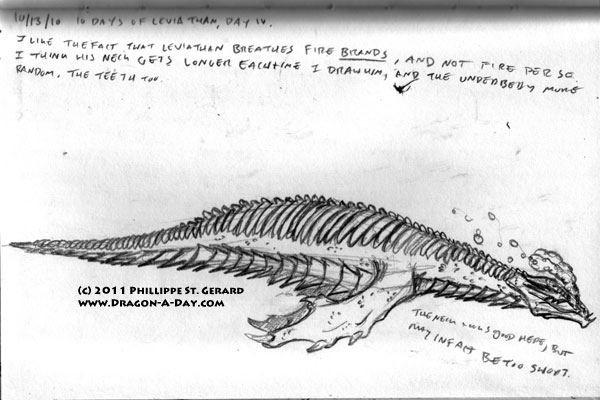 10/13/10 10 DAYS OF LEVIATHAN, DAY 10.
I LIKE THE FACT THAT LEVIATHAN BREATHES FIRE BRANDS, AND NOT FIRE PER SE.
I THINK HIS NECK GETS LONGER EACH TIME I DRAW HIM, AND THE UNDERBELLY MORE
RANDOM. THE TEETH TOO.
(C) 2011 PHILLIPPE ST. GERARD
WWW.DRAGON-A-DAY.COM
THE NECK LOOKS GOOD HERE, BUT
MAY IN FACT BE TOO SHORT.